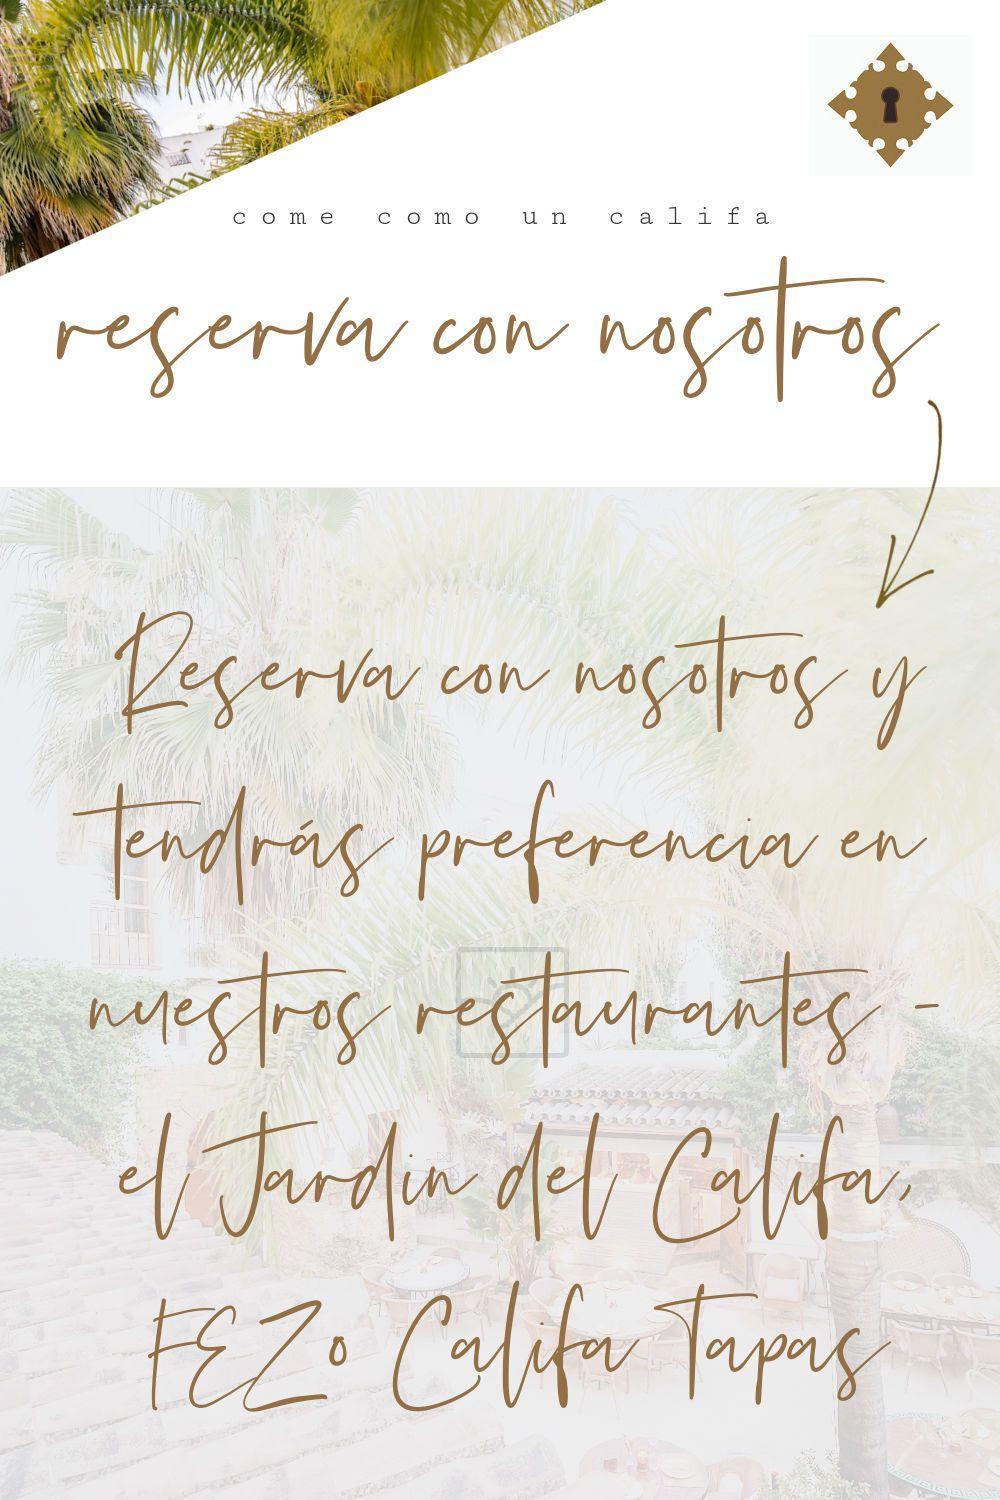 come como un califa
reserva con nosotros
Reserva con nosotros y
tendrás preferencia en
nuestros restaurantes -
el Jardin del Califa,
FEZ o Califa Tapas